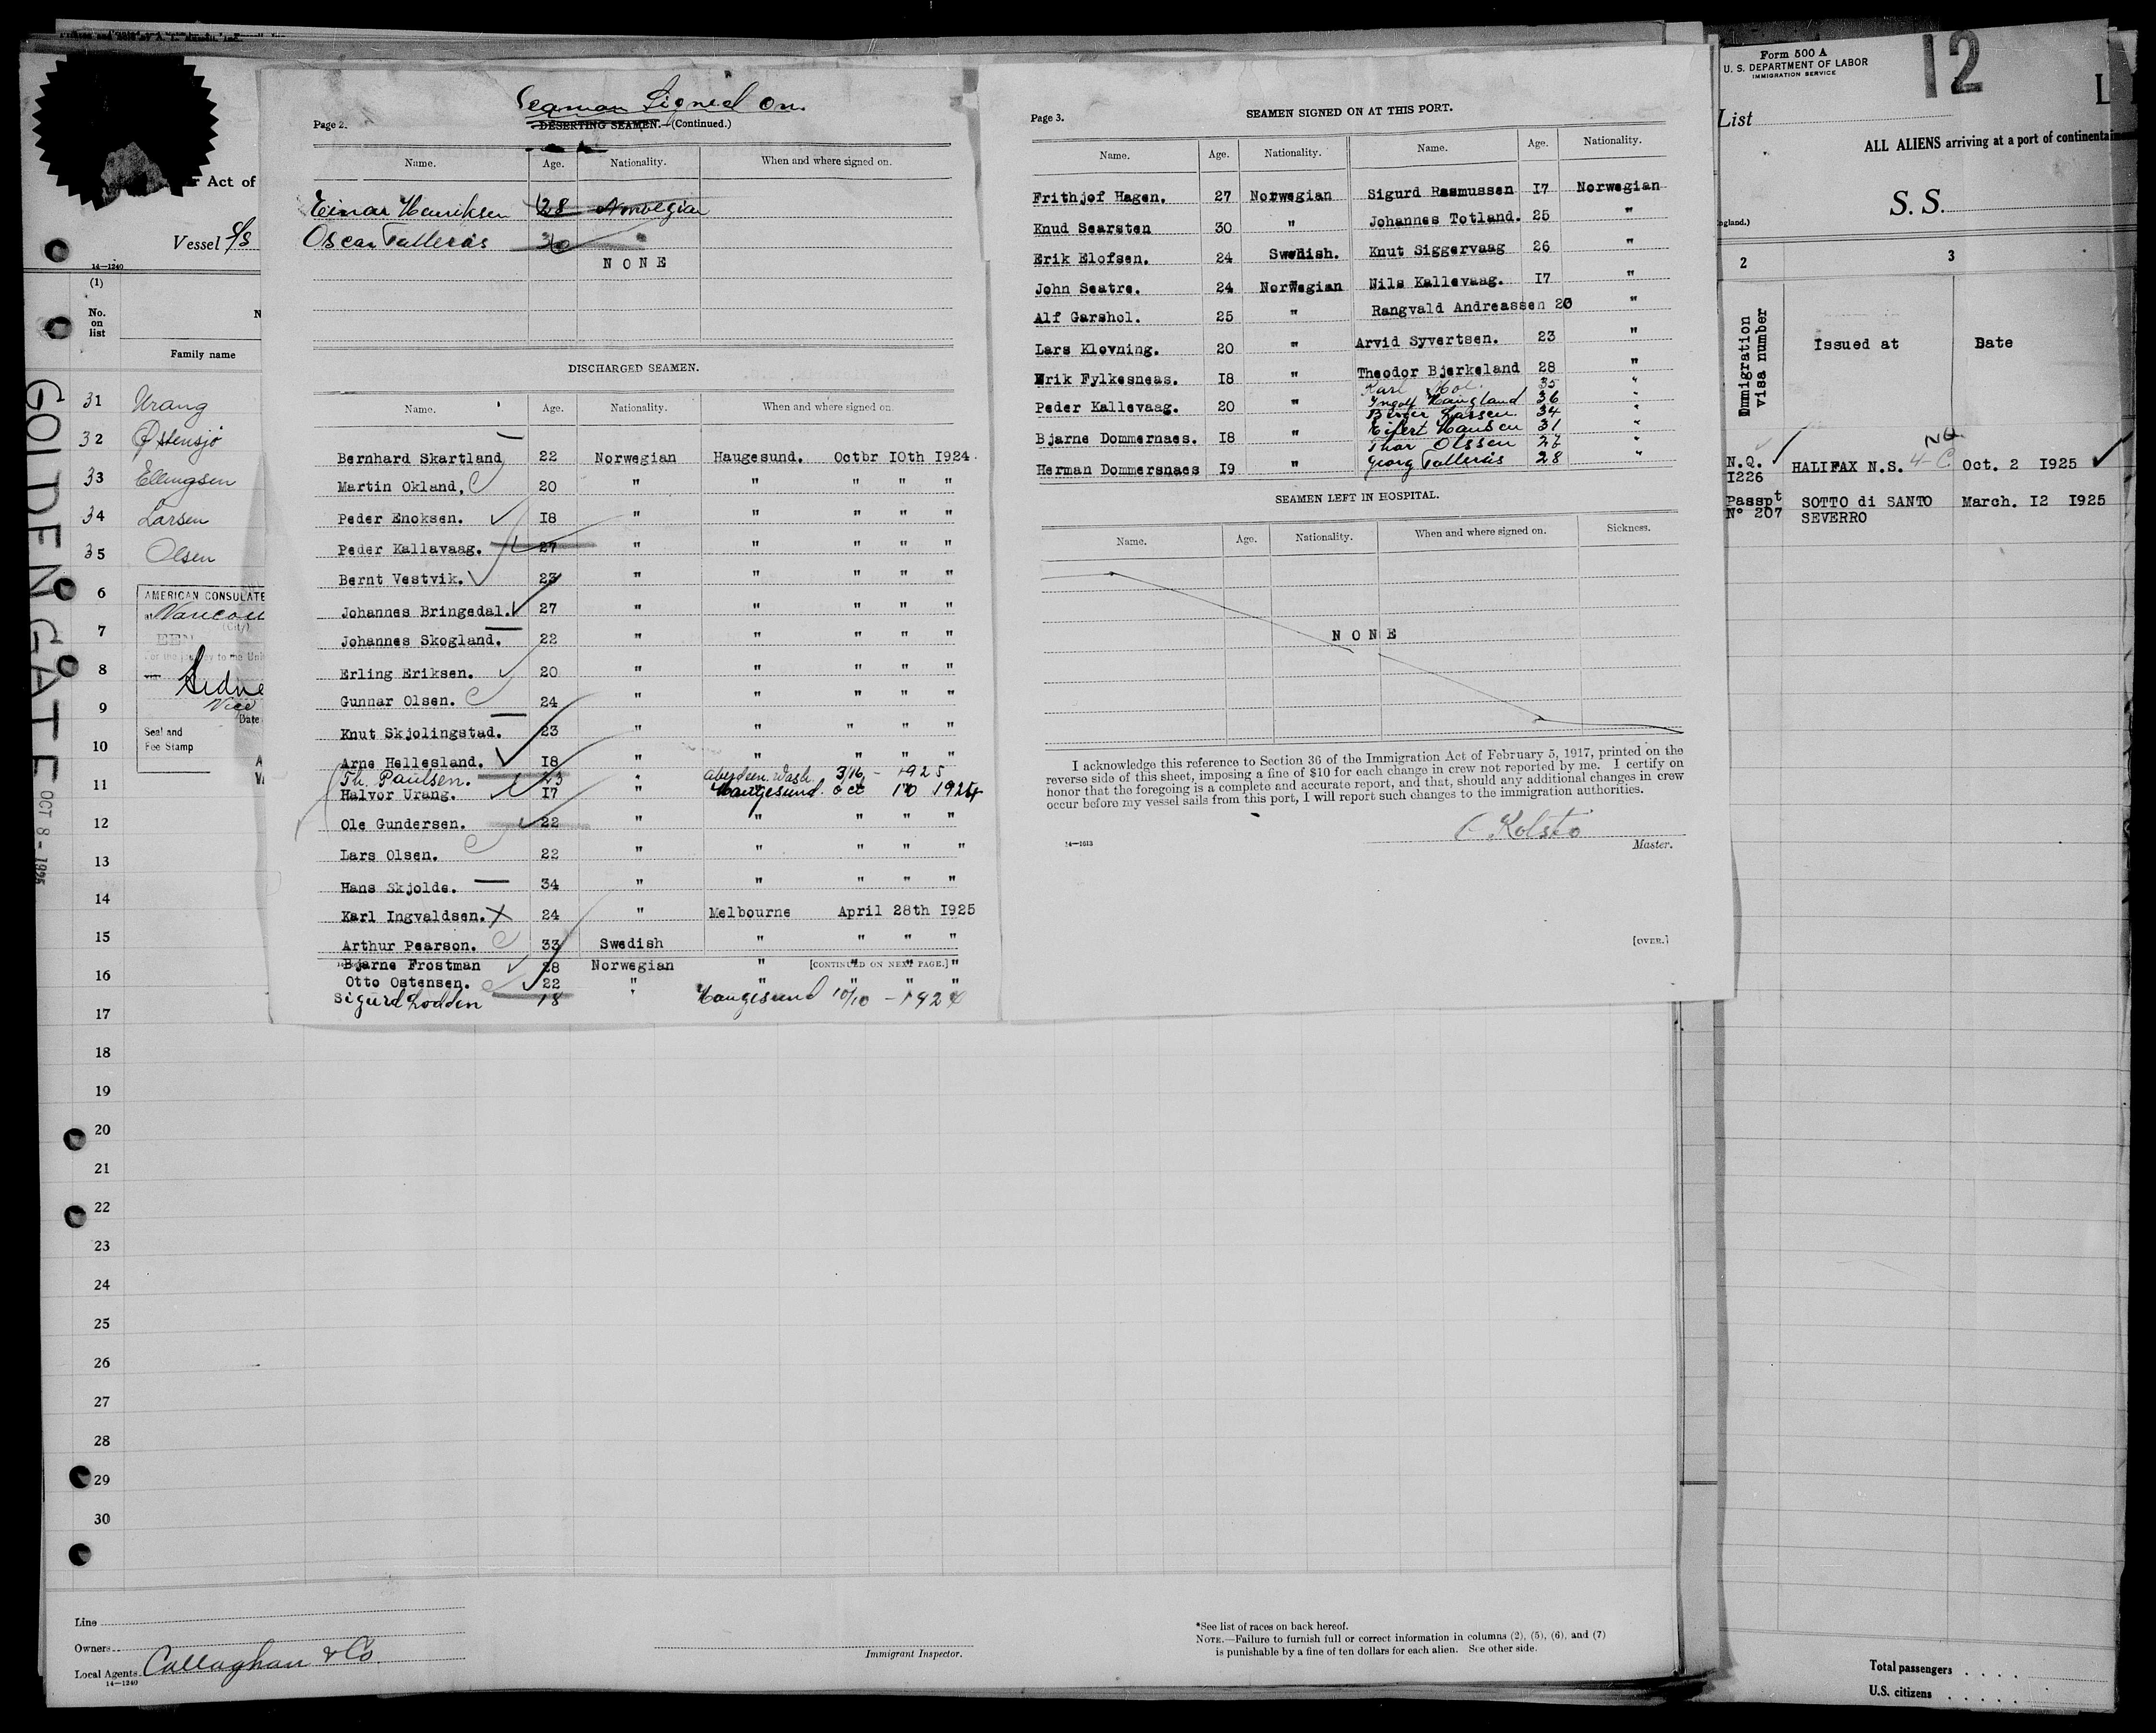 Act of
Vessel S/S
14—1240
(1)
No.
on
list
Family name
31 Urang
32 Østensjö
33 Ellingsen
34 Larsen
35 Olsen
6
AMERICAN CONSULATE
7
8
9
Vice
Date
Seal and
10
Fee Stamp
11
12
13
14
15
16
17
18
19
20
21
22
23
24
25
26
27
28
29
30
GOLDEN GATE OCT 8 - 1925
Line
Owners
Local Agents Callaghan & Co.
14—1240
Immigrant Inspector.
*See list of races on back hereof.
NOTE.—Failure to furnish full or correct information in columns (2), (5), (6), and (7)
is punishable by a fine of ten dollars for each alien. See other side.
Seaman Signed on.
Page 2. DESERTING SEAMEN.—(Continued.)
Name. Age. Nationality. When and where signed on.
Einar Henriksen 28 Norwegian
Oscar Tallerås 30 "
NONE
DISCHARGED SEAMEN.
Name. Age. Nationality. When and where signed on.
Bernhard Skartland 22 Norwegian Haugesund. Octbr 10th 1924.
Martin Okland. 20 " " " " "
Peder Enoksen. 18 " " " " "
Peder Kallavaag. 27 " " " " "
Bernt Vestvik. 23 " " " " "
Johannes Bringedal. 27 " " " " "
Johannes Skogland. 22 " " " " "
Erling Eriksen. 20 " " " " "
Gunnar Olsen. 24 " " " " "
Knut Skjolingstad. 23 " " " " "
Arne Hellesland. 18 " " " " "
Th. Paulsen. 23 " Aberdeen Wash. 3/16 - 1925
Halvor Urang. 17 " Haugesund oct 10 1924
Ole Gundersen. 22 " " " " "
Lars Olsen. 22 " " " " "
Hans Skjolde. 34 " " " " "
Karl Ingvaldsen. X 24 " Melbourne April 28th 1925
Arthur Pearson. 33 Swedish " " " "
Bjarne Frostman 28 Norwegian " " " "
[CONTINUED ON NEXT PAGE.]
Otto Ostensen. 22 " " " " "
Sigurd Lodden 18 " Haugesund 10/10 - 1924
Page 3. SEAMEN SIGNED ON AT THIS PORT.
Name. Age. Nationality. Name. Age. Nationality.
Frithjof Hagen. 27 Norwegian Sigurd Rasmussen 17 Norwegian
Knud Searsten 30 " Johannes Totland. 25 "
Erik Elofsen. 24 Swedish. Knut Siggervaag 26 "
John Seatre. 24 Norwegian Nils Kallevaag. 17 "
Alf Garshol. 25 " Rangvald Andreassen 20 "
Lars Klovning. 20 " Arvid Syvertsen. 23 "
Erik Fylkesneas. 18 " Theodor Bjerkeland 28 "
Karl Hol. 35 "
Peder Kallevaag. 20 " Ingolf Haugland 36 "
Birger Larsen 34 "
Bjarne Dommernaes. 18 " Eifert Hansen 31 "
Thor Olssen 26 "
Herman Dommersnaes 19 " Georg Tallerås 28 "
SEAMEN LEFT IN HOSPITAL.
Name. Age. Nationality. When and where signed on. Sickness.
NONE
I acknowledge this reference to Section 36 of the Immigration Act of February 5, 1917, printed on the
reverse side of this sheet, imposing a fine of $10 for each change in crew not reported by me. I certify on
honor that the foregoing is a complete and accurate report, and that, should any additional changes in crew
occur before my vessel sails from this port, I will report such changes to the immigration authorities.
C Kolstö
14—1013
Master.
[OVER.]
Form 500 A
U. S. DEPARTMENT OF LABOR
IMMIGRATION SERVICE
12
List
ALL ALIENS arriving at a port of
S. S.
2 3
Immigration
visa number
Issued at Date
N.Q.
1226
HALIFAX N.S. 4-C NQ Oct. 2 1925
Passpt
N° 207
SOTTO di SANTO
SEVERRO
March. 12 1925
Total passengers . . . .
U.S. citizens . . . . .